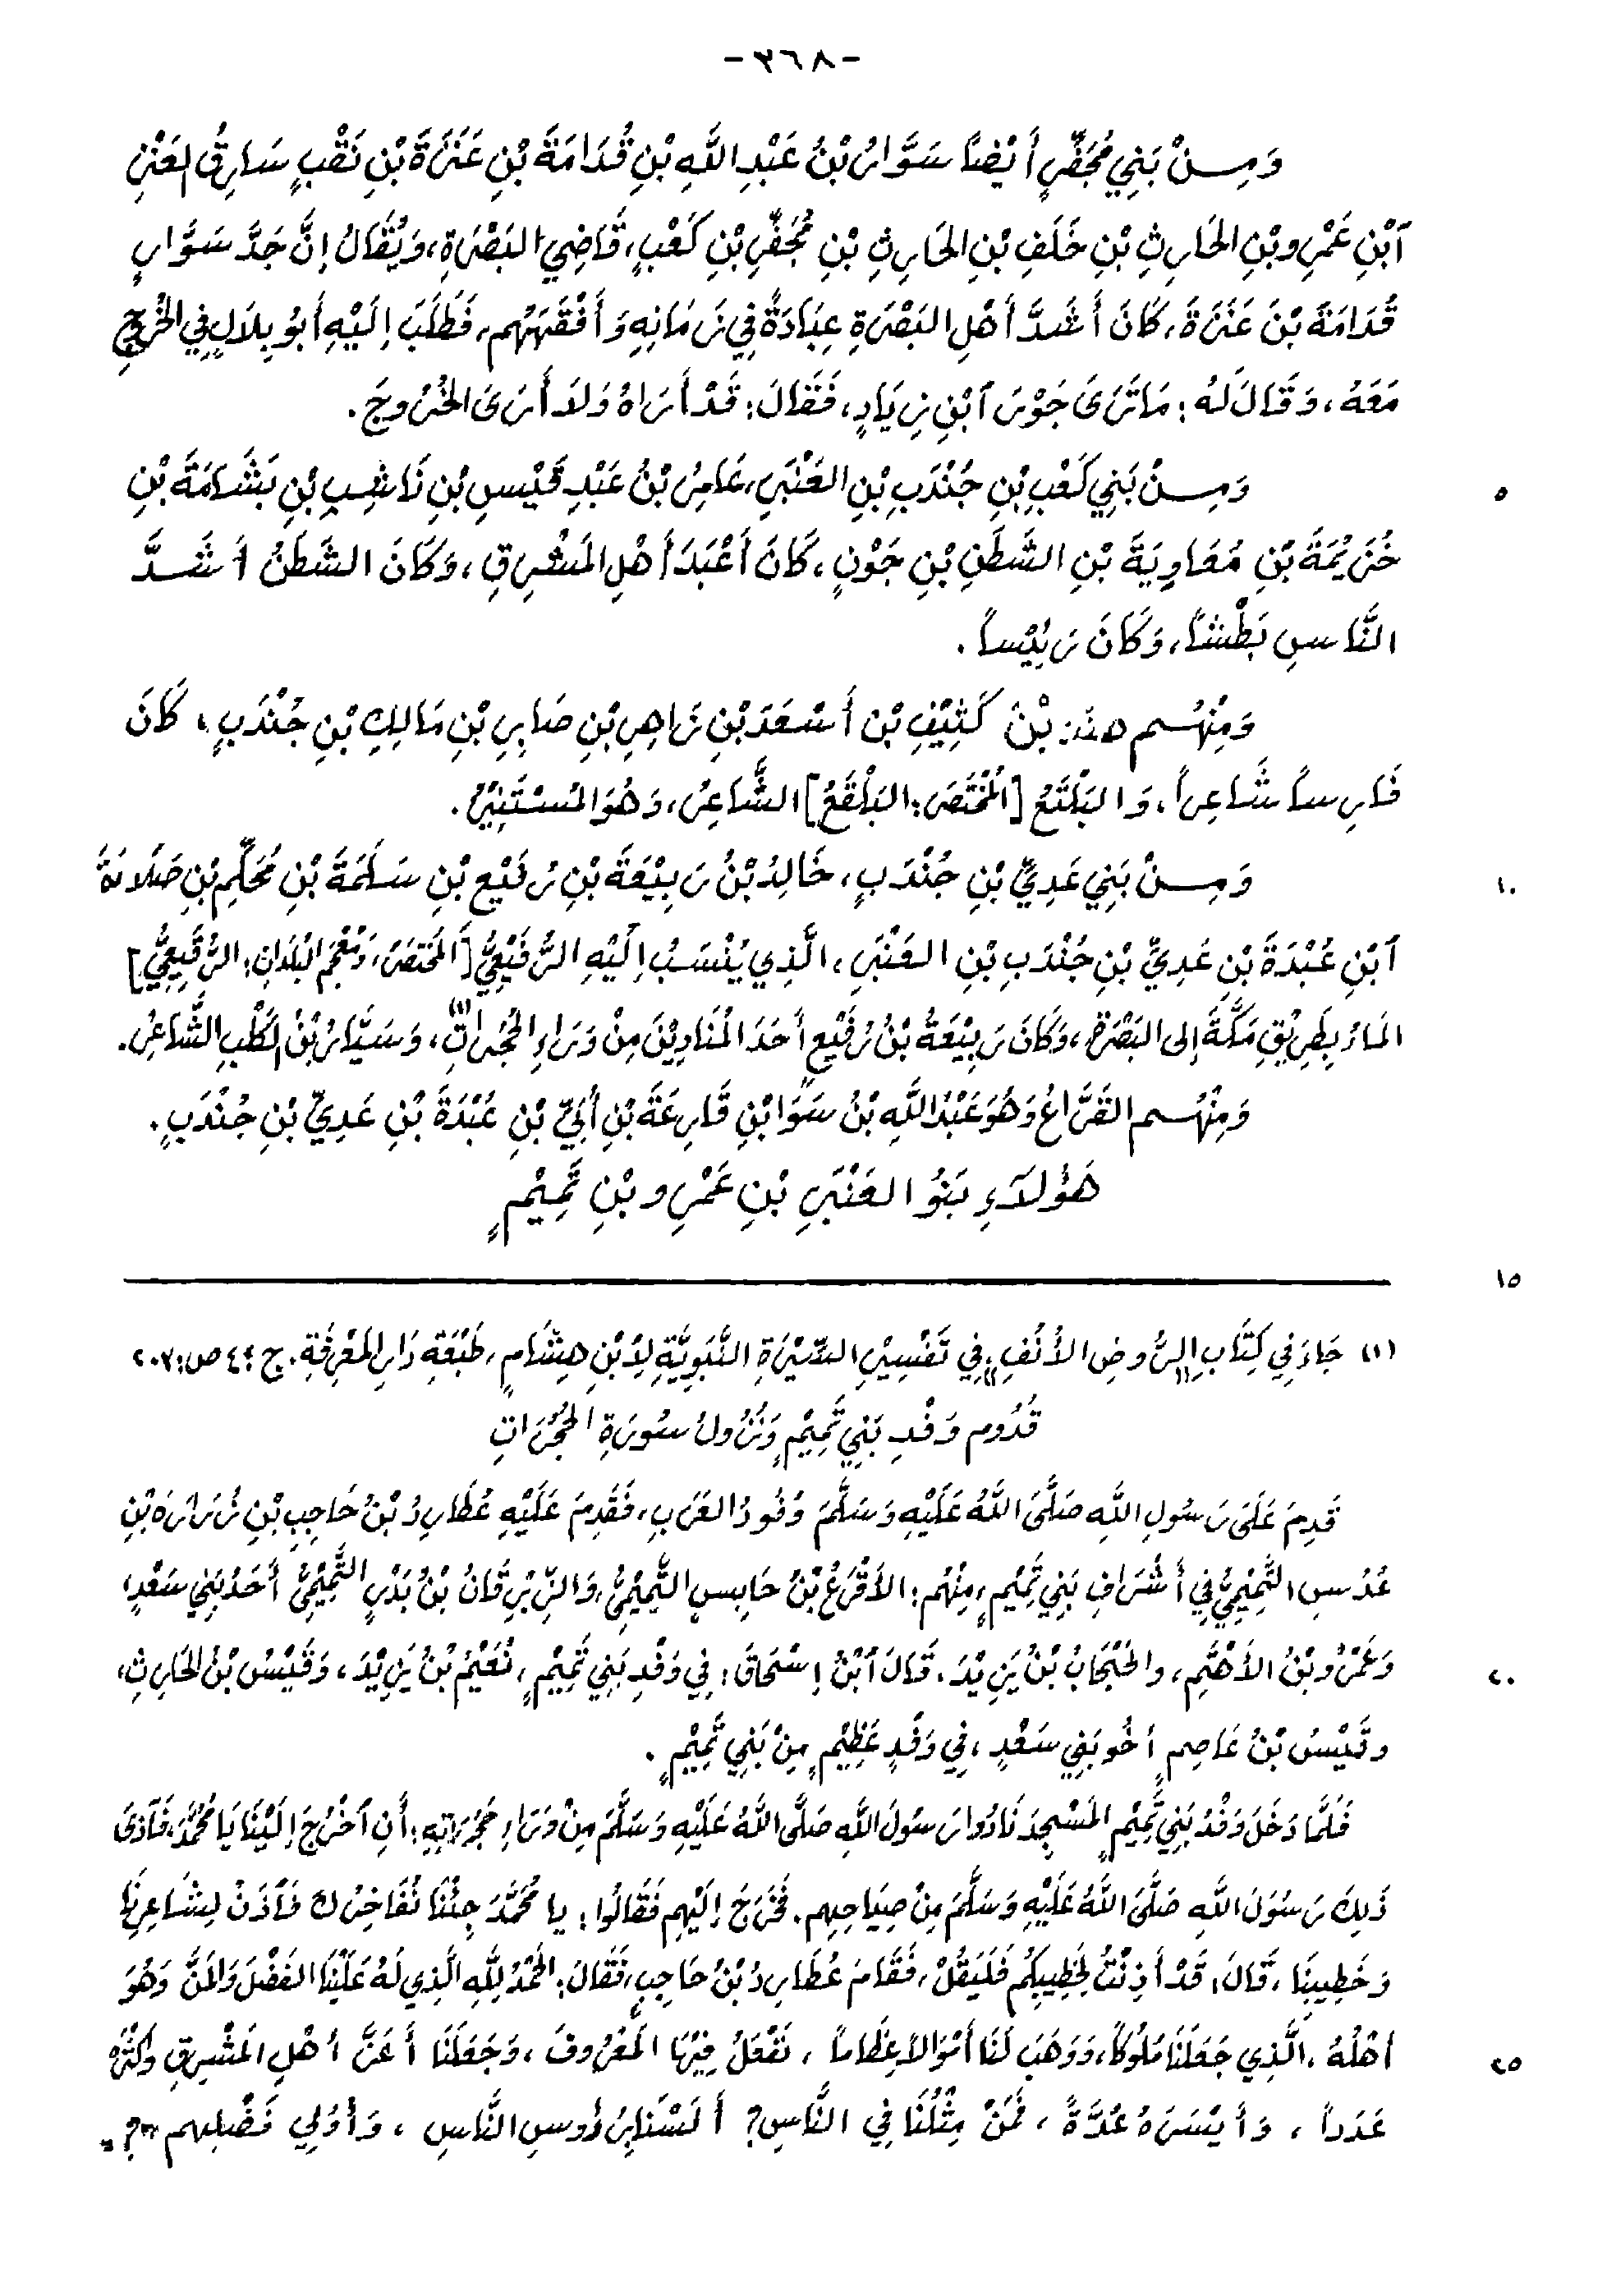 -٣٦٨-
وَمِنْ بَنِي مُجَفِّرٍ أَيْضاً سَوَّارُ بْنُ عَبْدِ اللَّهِ بْنِ قُدَامَةَ بْنِ عَنَزَةَ بْنِ نَقْبٍ سَارِقِ العَنْزِ
ٱبْنِ عَمْرِو بْنِ الحَارِثِ بْنِ خَلَفِ بْنِ الحَارِثِ بْنِ مُجَفِّرِ بْنِ كَعْبٍ، قَاضِي البَصْرَةِ، وَيُقَالُ إِنَّ جَدَّ سَوَّارٍ
قُدَامَةَ بْنَ عَنَزَةَ، كَانَ أَشَدَّ أَهْلِ البَصْرَةِ عِبَادَةً فِي زَمَانِهِ وَأَفْقَهَهُم، فَطَلَبَ إِلَيْهِ أَبُو بِلَالٍ فِي الخُرُوجِ
مَعَهُ، وَقَالَ لَهُ: مَا تَرَى جَوْرَ ٱبْنِ زِيَادٍ، فَقَالَ: قَدْ أَرَاهُ وَلَا أَرَى الخُرُوجَ.
وَمِنْ بَنِي كَعْبِ بْنِ جُنْدَبِ بْنِ العَنْبَرِ، عَامِرُ بْنُ عَبْدِ قَيْسِ بْنِ نَاشِبِ بْنِ بَشَامَةَ بْنِ
٥
خُزَيْمَةَ بْنِ مُعَاوِيَةَ بْنِ الشَّطَنِ بْنِ جَوْنٍ، كَانَ أَعْبَدَ أَهْلِ المَشْرِقِ، وَكَانَ الشَطَنُ أَشَدَّ
النَّاسِ بَطْشاً، وَكَانَ رَئِيْساً.
وَمِنْهُم هِنْدُ بْنُ كَثِيْفِ بْنِ أَسْعَدَ بْنِ زَاهِرِ بْنِ صَابِرِ بْنِ مَالِكِ بْنِ جُنْدَبٍ، كَانَ
فَارِساً شَاعِراً، وَالبَلْتَعُ [المُخْتَصَر: البَلْقَعُ] الشَّاعِرُ، وَهُوَ المُسْتَنِيْرُ.
وَمِنْ بَنِي عَدِيِّ بْنِ جُنْدَبٍ، خَالِدُ بْنُ رَبِيْعَةَ بْنِ رُفَيْعِ بْنِ سَلَمَةَ بْنِ مُحَلِّمِ بْنِ صَلَاءَةَ
١٠
ٱبْنِ عُبْدَةَ بْنِ عَدِيِّ بْنِ جُنْدَبِ بْنِ العَنْبَرِ، الَّذِي يُنْسَبُ إِلَيْهِ الرُّفَيْعِيُّ [المُخْتَصَرُ، وَمُعْجَمُ البُلْدَانِ: الرُّقَيْعِيُّ]
المَاءُ بِطَرِيْقِ مَكَّةَ إِلَى البَصْرَةِ، وَكَانَ رَبِيْعَةُ بْنُ رُفَيْعٍ أَحَدَ المُنَادِيْنَ مِنْ وَرَاءِ الحُجُرَاتِ(١)، وَسَيَّارُ بْنُ الكَلْبِ الشَّاعِرُ.
وَمِنْهُم القَرَّاعُ وَهُوَ عَبْدُ اللَّهِ بْنُ سَوَا بْنِ قَارِعَةَ بْنِ أُبَيِّ بْنِ عُبْدَةَ بْنِ عَدِيِّ بْنِ جُنْدَبٍ.
هَؤُلَاءِ بَنُو العَنْبَرِ بْنِ عَمْرِو بْنِ تَمِيْمٍ
١٥
(١) جَاءَ فِي كِتَابِ "الرُّوضِ الأُنُفِ" فِي تَفْسِيْرِ السِّيْرَةِ النَّبَوِيَّةِ لِابْنِ هِشَامٍ، طَبْعَةِ دَارِ المَعْرِفَةِ. ج: ٤ ص: ٢٠٣
قُدُومِ وَفْدِ بَنِي تَمِيْمٍ وَنُزُولُ سُورَةِ الحُجُرَاتِ
قَدِمَ عَلَى رَسُولِ اللَّهِ صَلَّى اللَّهُ عَلَيْهِ وَسَلَّمَ وُفُودُ العَرَبِ، فَقَدِمَ عَلَيْهِ عُطَارِدُ بْنُ حَاجِبِ بْنِ زُرَارَةَ بْنِ
عُدُسِ التَّمِيْمِيُّ فِي أَشْرَافِ بَنِي تَمِيْمٍ، مِنْهُم: الأَقْرَعُ بْنُ حَابِسٍ التَّمِيْمِيُّ، وَالزِّبْرِقَانُ بْنُ بَدْرٍ التَّمِيْمِيُّ أَحَدُ بَنِي سَعْدٍ،
وَعَمْرُو بْنُ الأَهْتَمِ، والحَبْحَابُ بْنُ يَزِيْدَ. قَالَ ٱبْنُ إِسْحَاقَ: فِي وَفْدِ بَنِي تَمِيْمٍ، نُعَيْمُ بْنُ يَزِيْدَ، وَقَيْسُ بْنُ الحَارِثِ،
٢٠
وقَيْسُ بْنُ عَاصِمٍ أَخُو بَنِي سَعْدٍ، فِي وَفْدٍ عَظِيْمٍ مِنْ بَنِي تَمِيْمٍ.
فَلَمَّا دَخَلَ وَفْدُ بَنِي تَمِيْمٍ المَسْجِدَ نَادُوا رَسُولَ اللَّهِ صَلَّى اللَّهُ عَلَيْهِ وَسَلَّمَ مِنْ وَرَاءِ حُجُرَاتِهِ: أَنِ ٱخْرُجْ إِلَيْنَا يَا مُحَمَّدُ، فَآذَى
ذَلِكَ رَسُولَ اللَّهِ صَلَّى اللَّهُ عَلَيْهِ وَسَلَّمَ مِنْ صِيَاحِهِم. فَخَرَجَ إِلَيْهِم فَقَالُوا: يا مُحَمَّدُ جِئْنَا نُفَاخِرُكَ فَأْذَنْ لِشَاعِرِنَا
وَخَطِيبِنَا، قَالَ: قَدْ أَذِنْتُ لِخَطِيبِكُم فَلْيَقُلْ، فَقَامَ عُطَارِدُ بْنُ حَاجِبٍ، فَقَالَ: الحَمْدُ لِلَّهِ الَّذِي لَهُ عَلَيْنَا الفَضْلَ وَالمَنَّ وَهُوَ
أَهْلُهُ، الَّذِي جَعَلَنَا مُلُوكاً، وَوَهَبَ لَنَا أَمْوَالاً عِظَاماً، نَفْعَلُ فِيْهَا المَعْرُوفَ، وَجَعَلَنَا أَعَزَّ أَهْلِ المَشْرِقِ وَأَكْثَرَهُ
٢٥
عَدَداً، وَأَيْسَرَهُ عُدَّةً، فَمَنْ مِثْلُنَا فِي النَّاسِ؟ أَلَسْنَا بِرُؤوسِ النَّاسِ، وَأُولِي فَضْلِهِم؟ =